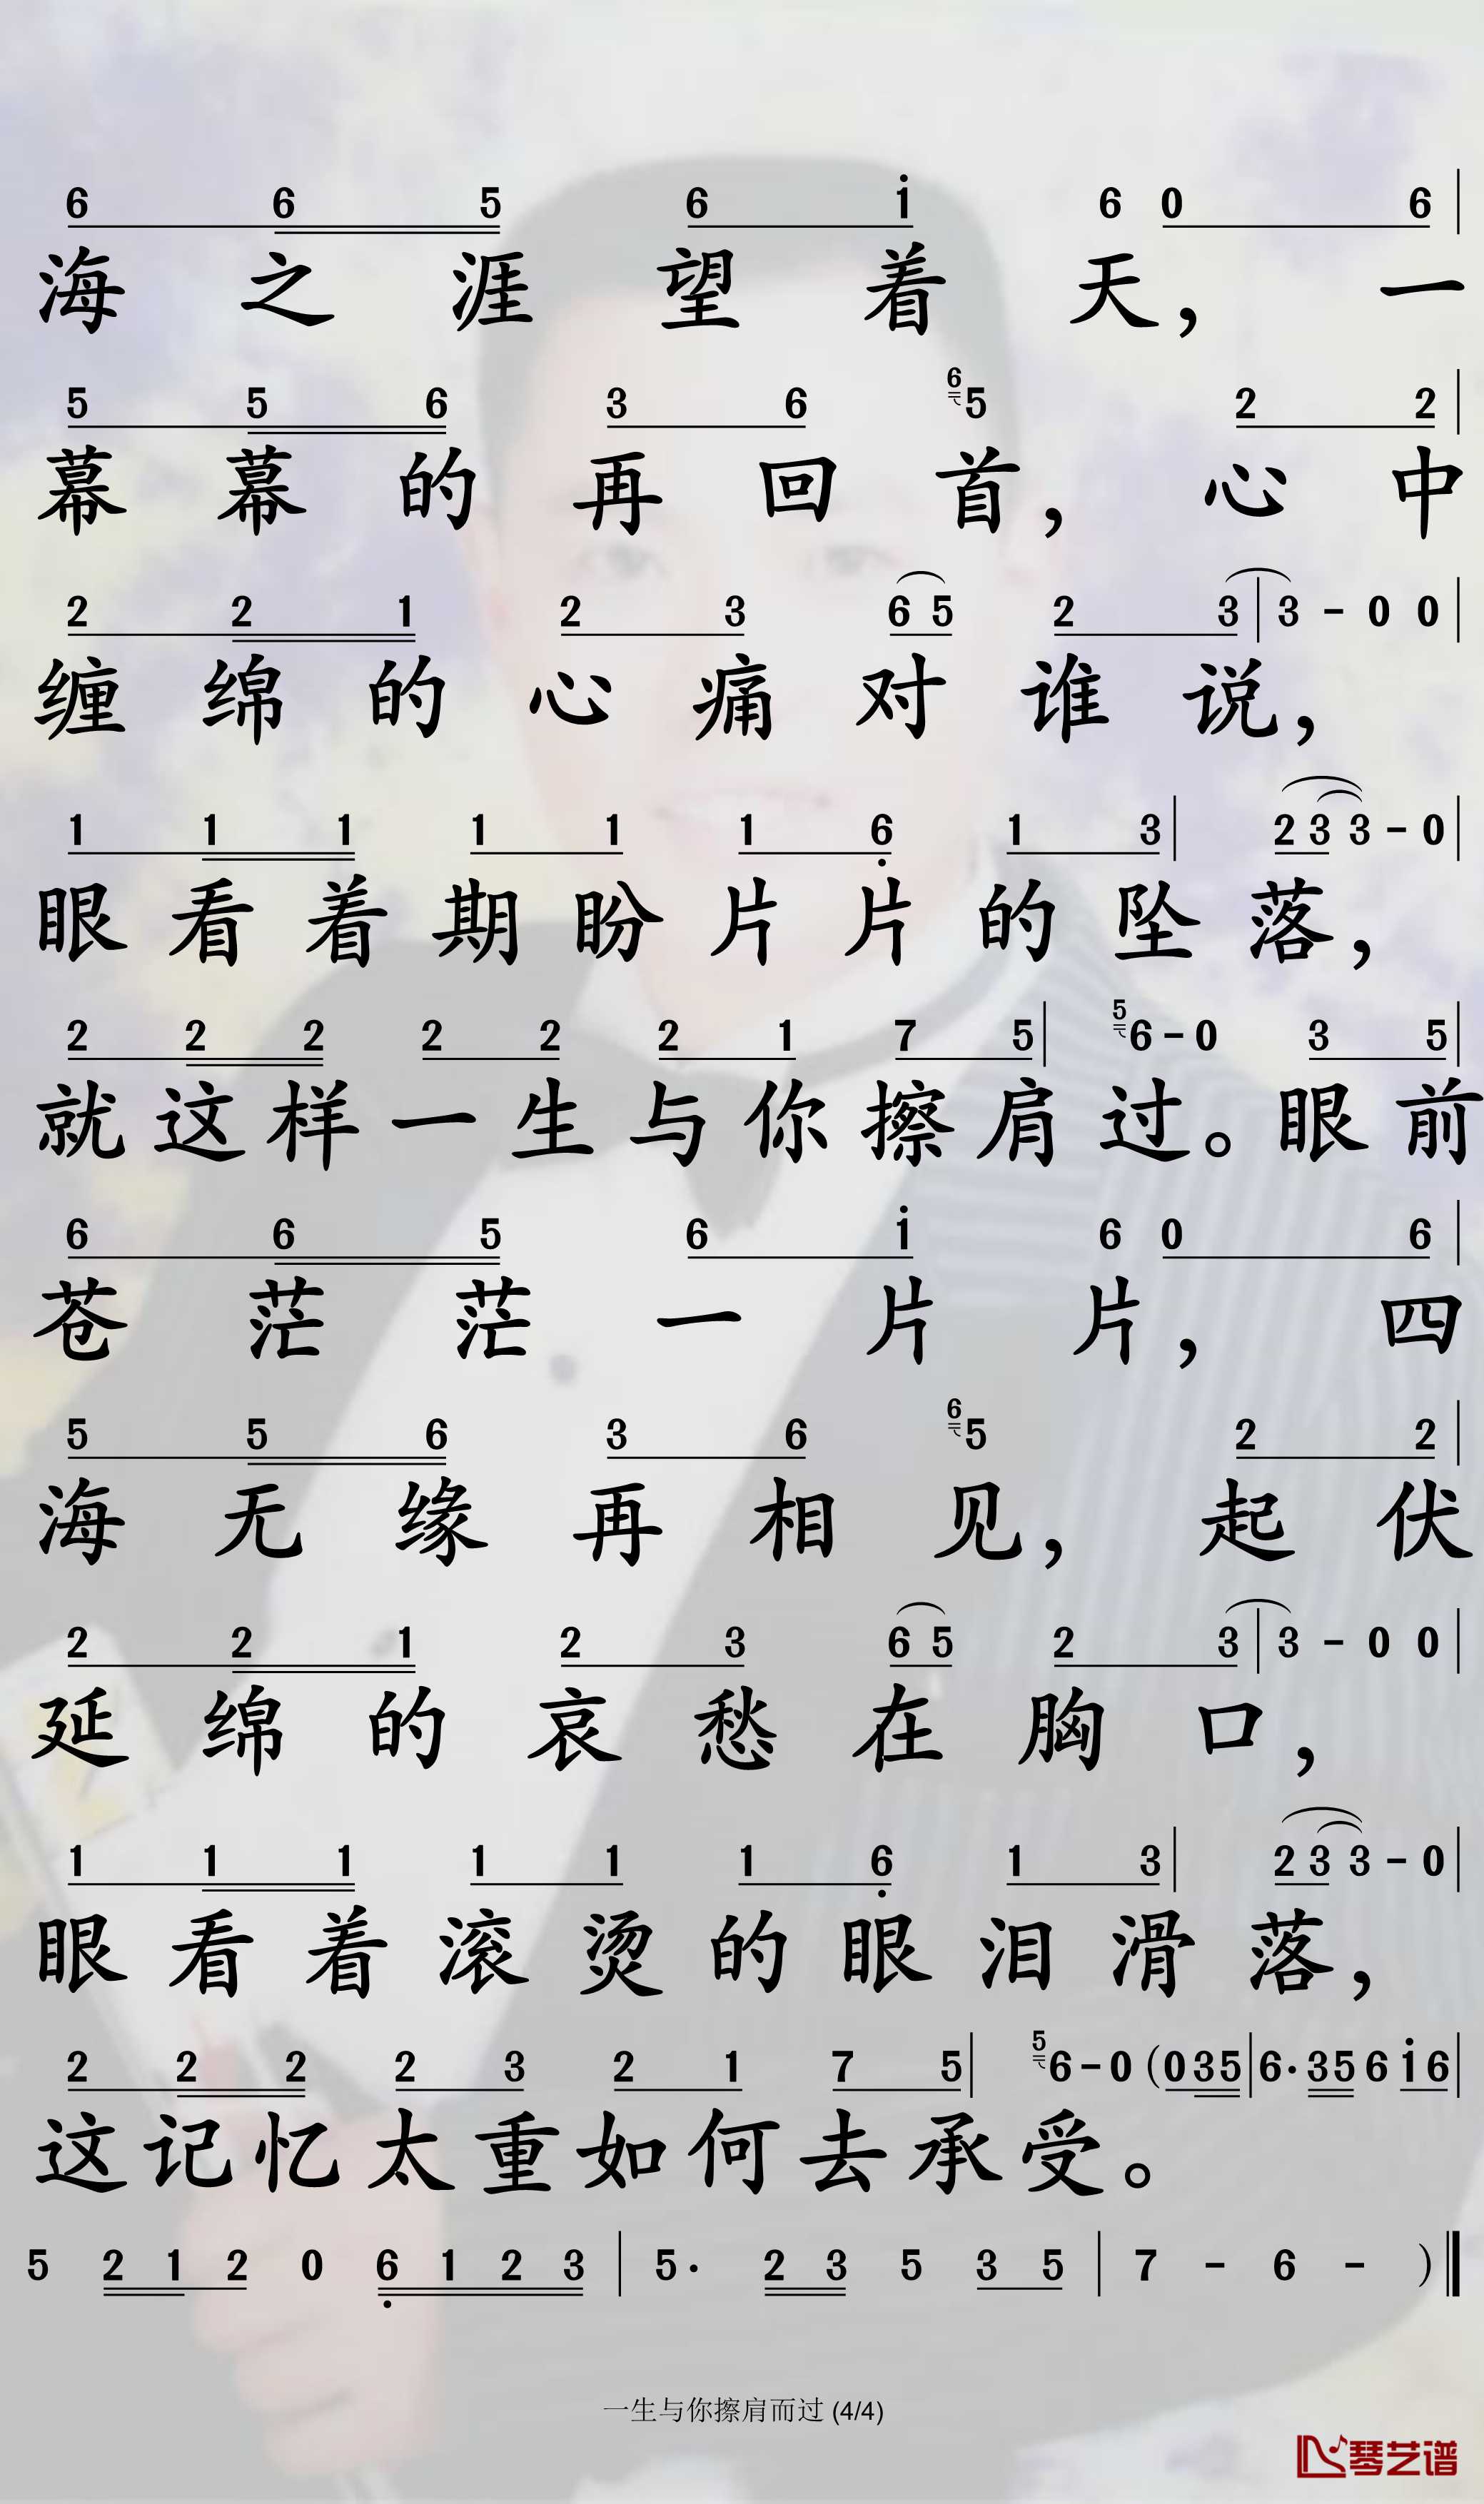 6 6 5 6 i 6 0 6
海之涯望着天，一
5 5 6 3 6 6 5 2 2
幕幕的再回首，心中
2 2 1 2 3 6 5 2 3 | 3 - 0 0 |
缠绵的心痛对谁说，
1 1 1 1 1 1 6 1 3 | 2 3 3 - 0 |
眼看着期盼片片的坠落，
2 2 2 2 2 2 1 7 5 | 5 6 - 0 3 5 |
就这样一生与你擦肩过。眼前
6 6 5 6 i 6 0 6 |
苍茫茫一片片，四
5 5 6 3 6 6 5 2 2 |
海无缘再相见，起伏
2 2 1 2 3 6 5 2 3 | 3 - 0 0 |
延绵的哀愁在胸口，
1 1 1 1 1 1 6 1 3 | 2 3 3 - 0 |
眼看着滚烫的眼泪滑落，
2 2 2 2 3 2 1 7 5 | 5 6 - 0 (0 3 5 | 6· 3 5 6 i 6 |
这记忆太重如何去承受。
5 2 1 2 0 6 1 2 3 | 5· 2 3 5 3 5 | 7 - 6 - )
一生与你擦肩而过 (4/4)
琴艺谱